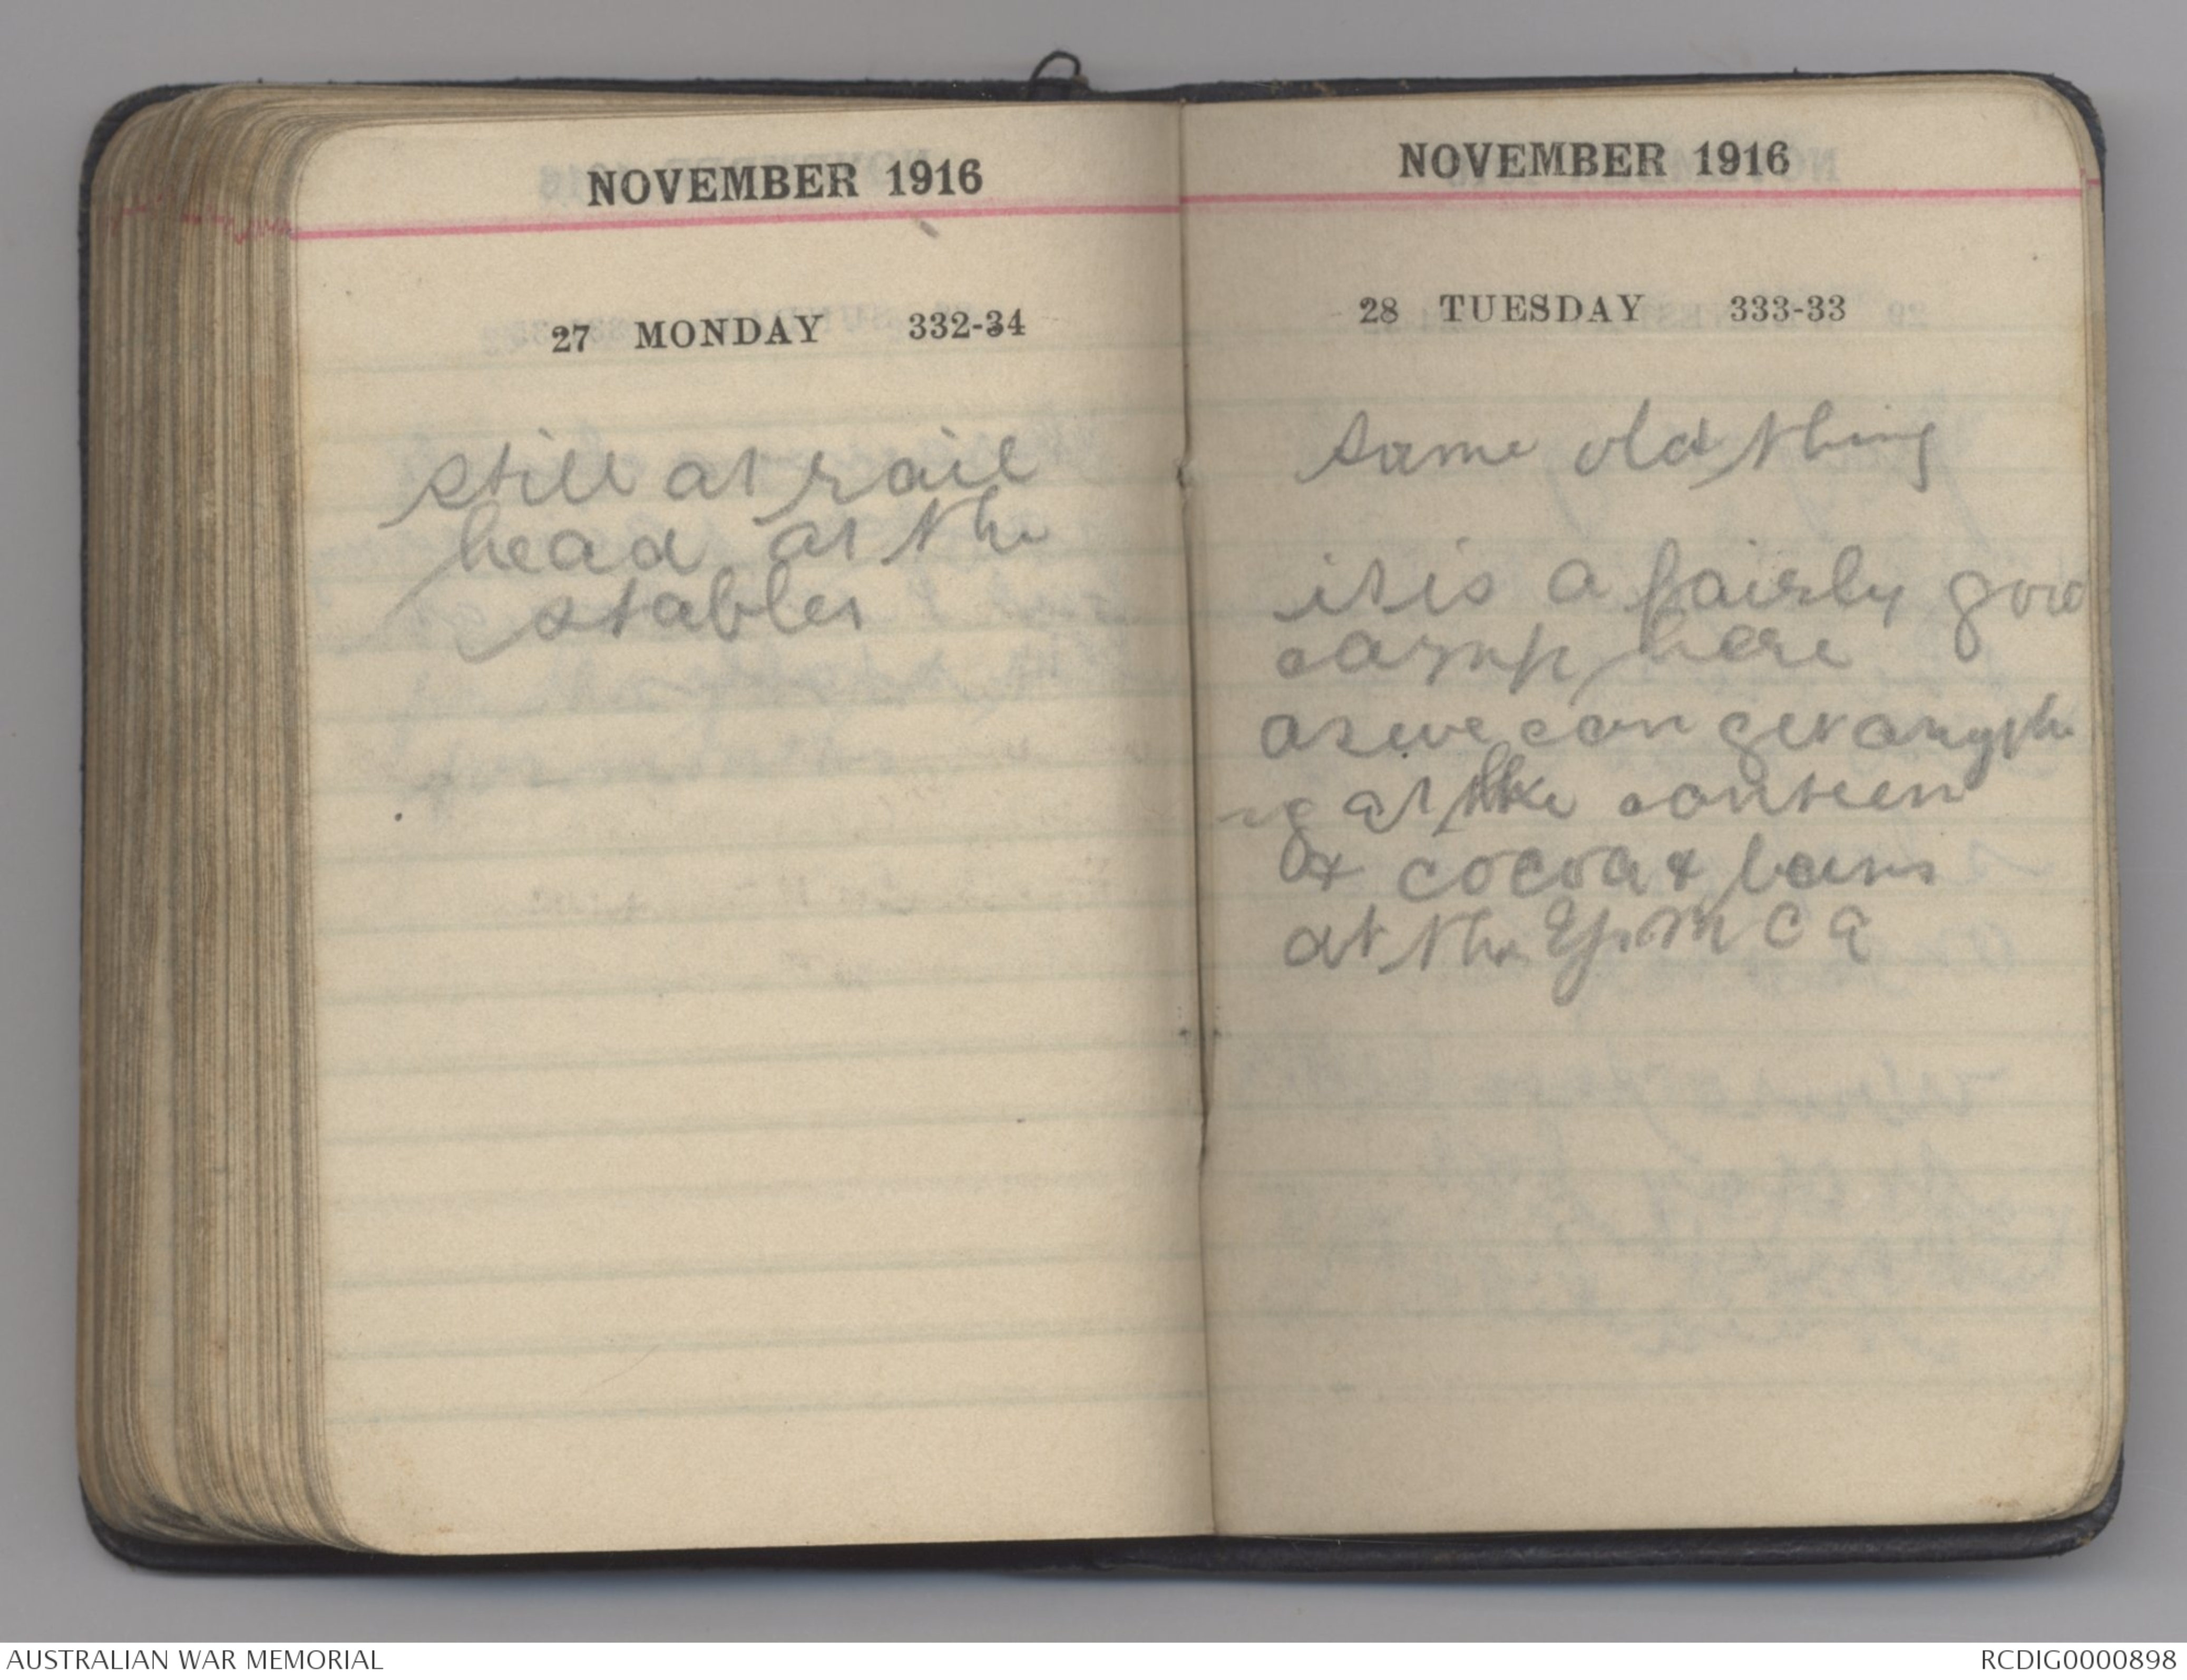 NOVEMBER 1916
27 MONDAY 332-34
still at rail
head at the
stables
NOVEMBER 1916
28 TUESDAY 333-33
same old thing
it is a fairly good
camp here
as we can get anythi
ng at the canteen
& cocoa & buns
at the Y.M C A
AUSTRALIAN WAR MEMORIAL
RCDIG0000898